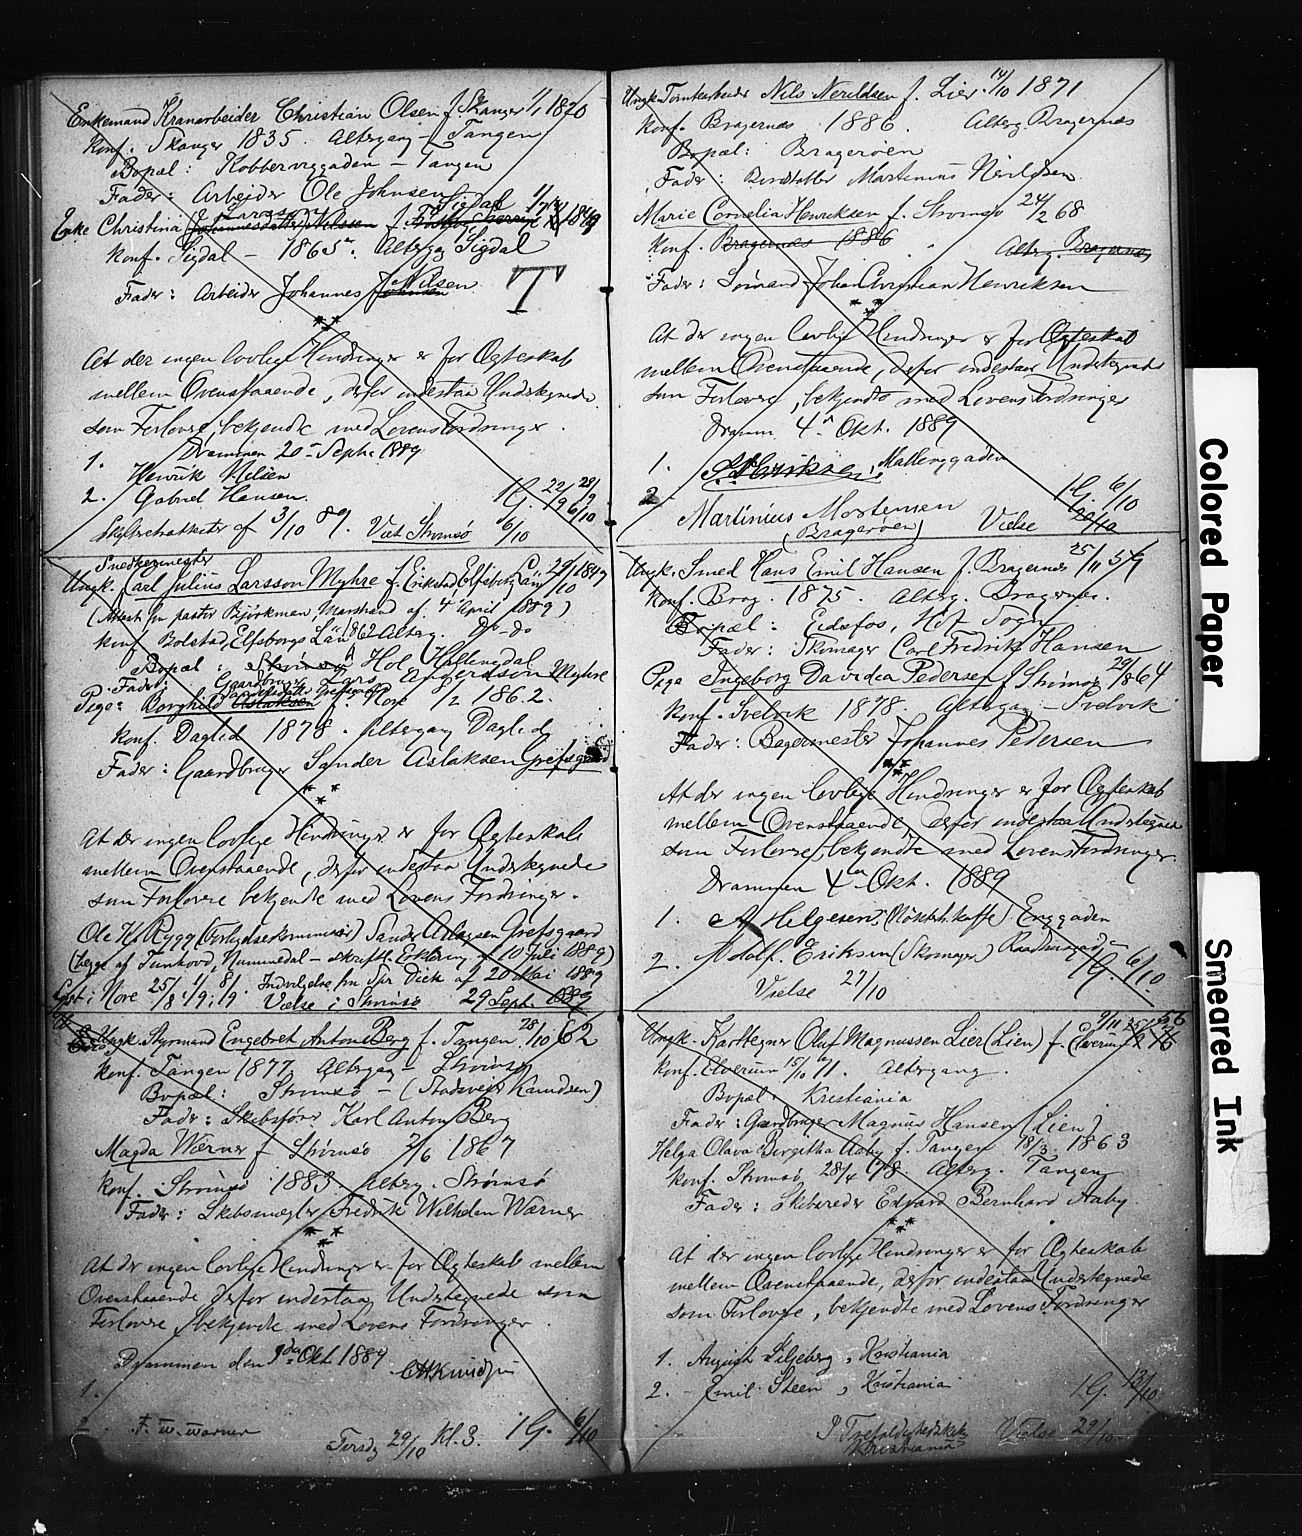 Enkemand Kranarbeider Christian Olsen f. Skauger 1/1 1820
Konf. Skauger 1835. Altergang - Tangen
Bopæl: Kobberviggaden - Tangen
Fader: Arbeider Ole Johnsen
Enke Christina Johannesdatter Nilsen f. Sigdal 1849
Konf. Sigdal - 1865. Altergg Sigdal
Fader: Arbeider Johannes Nilsen
T
At der ingen lovlige Hindringer er for Ægteskab
mellem Ovenstaaende, derfor indestaa Undertegnede
som Forlovere, bekjendte med Lovens Fordringer.
Drammen 20 - Septr. 1889
1. Henrik Nilsen
2. Gabriel Hansen.
1 G. 22/9 29/9 6/10
Skifteretsattest af 3/10 89. Viet Strømsø 6/10
Snedkermester
Ungk. Carl Julius Larsson Myhre f. Erikstad, Elfsborgs Län 29/10 1847
(Attest fra pastor Björkman, Marstrand af 4 April 1889)
Konf. Bolstad, Elfsborgs Län 1862 Alterg. Do - do
Bopæl: Hol, Hallingdal
Fader: Gaardbruger Lars Anderson Myhre
Pige: Borghild Aslaksen f. Nore 1/2 1862.
Konf. Daglid 1878. Altergang Daglid
Fader: Gaardbruger Sander Aslaksen Grefsgaard
At der ingen lovlige Hindringer er for Ægteskab
mellem Ovenstaaende, derfor indestaa Undertegnede
som Forlovere bekjendte med Lovens Fordringer.
Ole K. Rygg (Forligelseskommissær) Sander Aslaksen Grefsgaard
(begge af Tunhovd, Nummedal - skriftl. Erklæring af 10 Juli 1889)
Lyst i Nore 25/8 1/9 8/9. Indvilgelse fra Spr Dick af 20 Mai 1889
Vielse i Strømsø 29 Sept. 1889
Ungk. Styrmand Engebret Anton Berg f. Tangen 28/10 62
Konf. Tangen 1877 Altergang - Strømsø
Bopæl: Strømsø - (Stadsveier Knudsen)
Fader: Skibsfører Karl Anton Berg
Magda Wærner f. Strømsø 2/6 1867
Konf. Strømsø 1883. Alterg. Strømsø
Fader: Skibsmægler Fredrik Wilhelm Wærner
At der ingen lovlige Hindringer er for Ægteskab mellem
Ovenstaaende derfor indestaa Undertegnede som
Forlovere, bekjendte med Lovens Fordringer.
Drammen den Okt 1889
1.
2. F. W. Wærner
Tirsdg 29/10 Kl. 3. 1 G. 6/10
Ungk. Tomtearbeider Nils Nerildsen f. Lier 14/10 1871
Konf. Bragernæs 1886. Alterg. Bragernæs
Bopæl: Bragerøen
Fader: Martinius Nerildsen
Marie Cornelia Henriksen f. Strømsø 24/2 68
Konf. Bragernæs 1886 Alterg. Bragernæs
Fader: Sømand Johan Christian Henriksen
At der ingen lovlige Hindringer er for Ægteskab
mellem Ovenstaaende, derfor indestaar Undertegnede
som Forlovere, bekjendte med Lovens Fordringer
Dramm 4 Okt. 1889
1. Henriksen, Møllenggaden
2. Martinius Mortensen
(Bragerøen)
1 G. 6/10
Vielse 20/10
Ungk. Smed Hans Emil Hansen f. Bragernæs 25/11 59
Konf. Brag. 1875. Alterg. Bragernæs.
Bopæl: Eidsfos, Hof Sogn
Fader: Skomager Carl Fredrik Hansen
Pige Ingeborg Davidea Pedersen f. Strømsø 29/8 64
Konf. Svelvik 1878. Altergang - Svelvik
Fader: Bagermester Johannes Pedersen
At der ingen lovlige Hindringer er for Ægteskab
mellem Ovenstaaende, derfor indestaa Undertegnede
som Forlovere, bekjendte med Lovens Fordringer.
Drammen Okt. 1889
1. A. Helgesen, Enggaden
2. Adolf Eriksen (Skomager) 1 G. 6/10
Vielse 27/10
Ungk. Karttegner Oluf Magnussen Lier (Lien) f. Elverum 56
Konf. Elverum 15/10 71. Altergang.
Bopæl: Kristiania
Fader: Gaardbruger Magnus Hansen (Lien)
Helga Olava Birgitha Aaby f. Tangen 18/3 1863
Konf. Strømsø 28/4 78. Alterg. Tangen
Fader: Skibsreder Edvard Bernhard Aaby
At der ingen lovlige Hindringer er for Ægteskab
mellem Ovenstaaende, derfor indestaa Undertegnede
som Forlovere, bekjendte med Lovens Fordringer
1. August Liljeberg, Kristiania
2. Emil Steen, Kristiania
1 G. 13/10
I Trefoldighedskirk. Vielse 29/10
Kristiania
Colored Paper
Smeared Ink